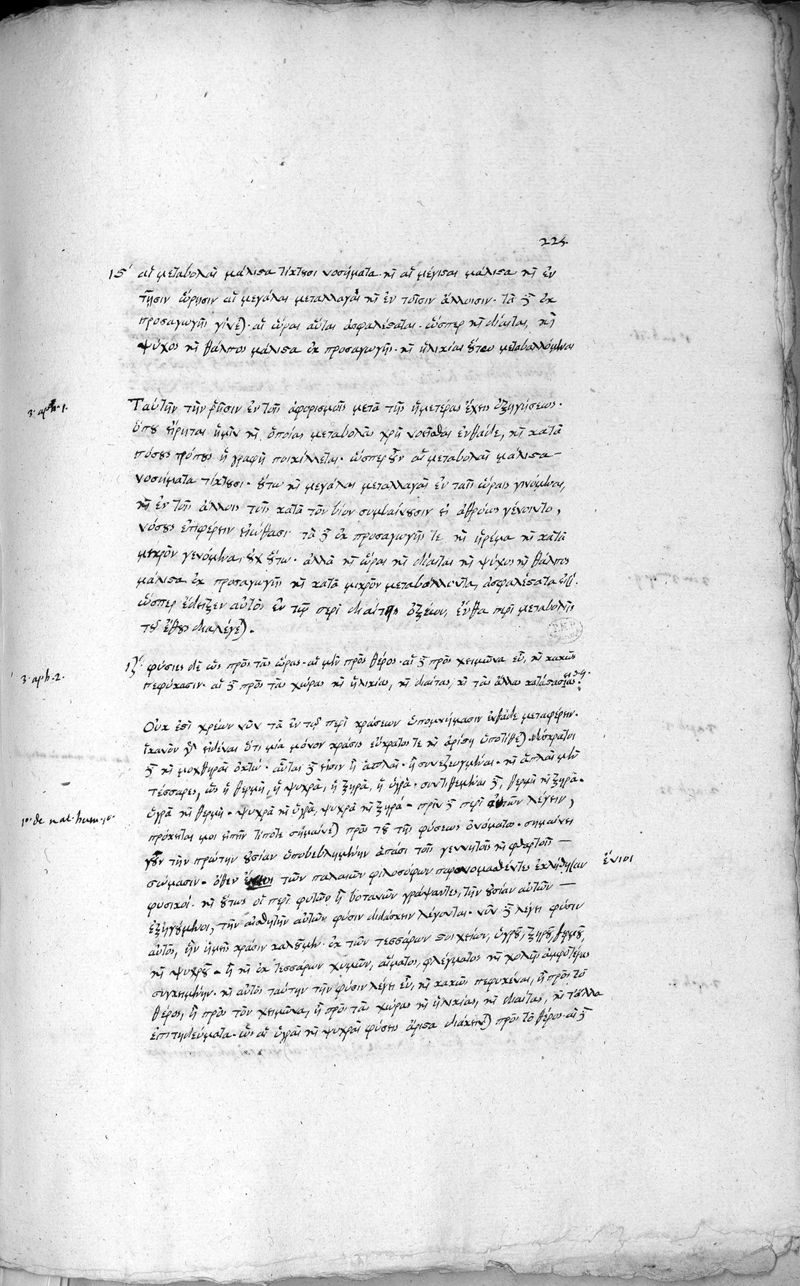 224
ιϛ΄ αἱ μεταβολαὶ μάλιστα τίκτουσι νοσήματα καὶ αἱ μέγισται μάλιστα καὶ ἐν
τῇσιν ὥρῃσιν αἱ μεγάλαι μεταλλαγαὶ καὶ ἐν τοῖσιν ἄλλοισιν. τὰ δ' ἐκ
προσαγωγῆς γίνεται. αἱ ὧραι αὗται ἀσφαλέσταται. ὥσπερ καὶ δίαιται, καὶ
ψύχος καὶ θάλπος μάλιστα ἐκ προσαγωγῆς. καὶ ἡλικίαι οὕτω μεταβαλλόμεναι
3. aph. 1.
Ταύτην τὴν ῥῆσιν ἐν τοῖς ἀφορισμοῖς μετὰ τῆς ἡμετέρας ἔχεις ἐξηγήσεως.
ὅπου εἴρηται ἡμῖν καὶ ὁποίας μεταβολὰς χρὴ νοεῖσθαι ἐνθάδε, καὶ κατὰ
πόσους τρόπους ἡ γραφὴ ποικίλλεται. ὥσπερ οὖν αἱ μεταβολαὶ μάλιστα
νοσήματα τίκτουσι. οὕτω καὶ μεγάλαι μεταλλαγαὶ ἐν ταῖς ὥραις γινόμεναι,
καὶ ἐν τοῖς ἄλλοις τοῖς κατὰ τὸν βίον συμβαίνουσιν εἰ ἀθρόως γένοιντο,
νόσους ἐπιφέρειν εἰώθασι. τὰ δ' ἐκ προσαγωγῆς τε καὶ ἠρέμα καὶ κατὰ
μικρὸν γενόμενα, οὐχ οὕτω. ἀλλὰ καὶ ὧραι καὶ δίαιται καὶ ψύχος καὶ θάλπος
μάλιστα ἐκ προσαγωγῆς καὶ κατὰ μικρὸν μεταβάλλοντα, ἀσφαλέστατά ἐστι.
ὥσπερ ἔδειξεν αὐτὸς ἐν τῷ περὶ διαίτης ὀξέων, ἔνθα περὶ μεταβολῆς
τοῦ ἔθους διαλέγεται.
3. aph. 2.
ιζ΄ φύσιες δὲ ὡς πρὸς τὰς ὥρας. αἱ μὲν πρὸς θέρος. αἱ δὲ πρὸς χειμῶνα εὖ, καὶ κακῶς
πεφύκασιν. αἱ δὲ πρὸς τὰς χώρας καὶ ἡλικίας, καὶ διαίτας, καὶ τὰς ἄλλας καταστάσιας
Οὐκ ἔστι χρέων νῦν τὰ ἐν τοῖς περὶ κράσεων ὑπομνήμασιν ἐνθάδε μεταφέρειν.
ἱκανὸν γὰρ εἰδέναι ὅτι μία μόνον κρᾶσις εὔκρατός τε καὶ ἀρίστη ὑποτίθεται. δύσκρατοι
δὲ καὶ μοχθηραὶ ὀκτώ. αὗται δέ εἰσιν ἢ ἁπλαῖ. ἢ συνεζευγμέναι. καὶ ἁπλαῖ μὲν
τέσσαρες, ὡς ἢ θερμή, ἢ ψυχρά, ἢ ξηρά, ἢ ὑγρά. συντιθεμέναι δέ, θερμὴ καὶ ξηρά.
ὑγρὰ καὶ θερμή. ψυχρὰ καὶ ὑγρά, ψυχρὰ καὶ ξηρά. πρὶν δὲ περὶ αὐτῶν λέγειν,
1ο. de nat. hum. 1ο.
πρόκειταί μοι εἰπεῖν τί ποτε σημαίνεται πρὸς τοῦ τῆς φύσεως ὀνόματος. σημαίνει
γοῦν τὴν πρώτην οὐσίαν ὑποβεβλημένην ἅπασι τοῖς γεννητοῖς καὶ φθαρτοῖς
σώμασιν. ὅθεν τῶν παλαιῶν φιλοσόφων παρονομασθέντες ἐκλήθησαν ἔνιοι
φυσικοί. καὶ οὕτως οἱ περὶ φυτῶν ἢ βοτανῶν γράψαντες, τὴν οὐσίαν αὐτῶν
ἐξηγούμενοι, τὴν αἰσθητὴν αὐτῶν φύσιν διδάσκειν λέγονται. νῦν δὲ λέγει φύσιν
αὐτός, ἣν ἡμεῖς κρᾶσιν καλοῦμεν. ἐκ τῶν τεσσάρων στοιχείων, ὑγροῦ, ξηροῦ, θερμοῦ,
καὶ ψυχροῦ. ἢ καὶ ἐκ τεσσάρων χυμῶν, αἵματος, φλέγματος καὶ χολῆς ἀμφοτέρας
συγκειμένην. καὶ αὐτὸς ταύτην τὴν φύσιν λέγει εὖ, καὶ κακῶς πεφυκέναι, ἢ πρὸς τὸ
θέρος, ἢ πρὸς τὸν χειμῶνα, ἢ πρὸς τὰς χώρας καὶ ἡλικίας, καὶ διαίτας, καὶ τἄλλα
ἐπιτηδεύματα. ὡς αἱ ὑγραὶ καὶ ψυχραὶ φύσεις ἄριστα διάκεινται πρὸς τὸ θέρος. αἱ δὲ